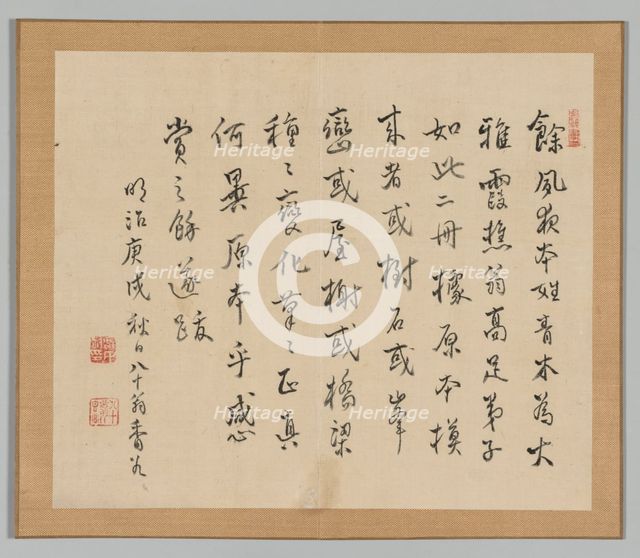 餘夙夜本姓青木為大
雅霞樵翁高足弟子
如此二冊據原本模
来者或樹石或峯
巒或屋榭或橋梁
種〻變化筆〻正真
何異原本乎感
賞之餘遂跋
明治庚戌秋日八十翁香谷
Heritage
Heritage
Heritage
Heritage
Heritage
Heritage
Heritage
Heritage
Heritage
©